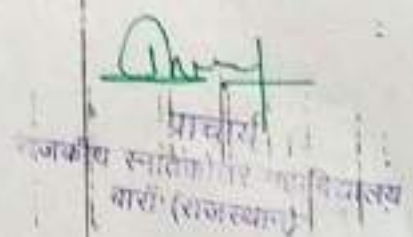 प्राचार्य
राजकीय स्नातकोत्तर महाविद्यालय
बारां (राजस्थान)